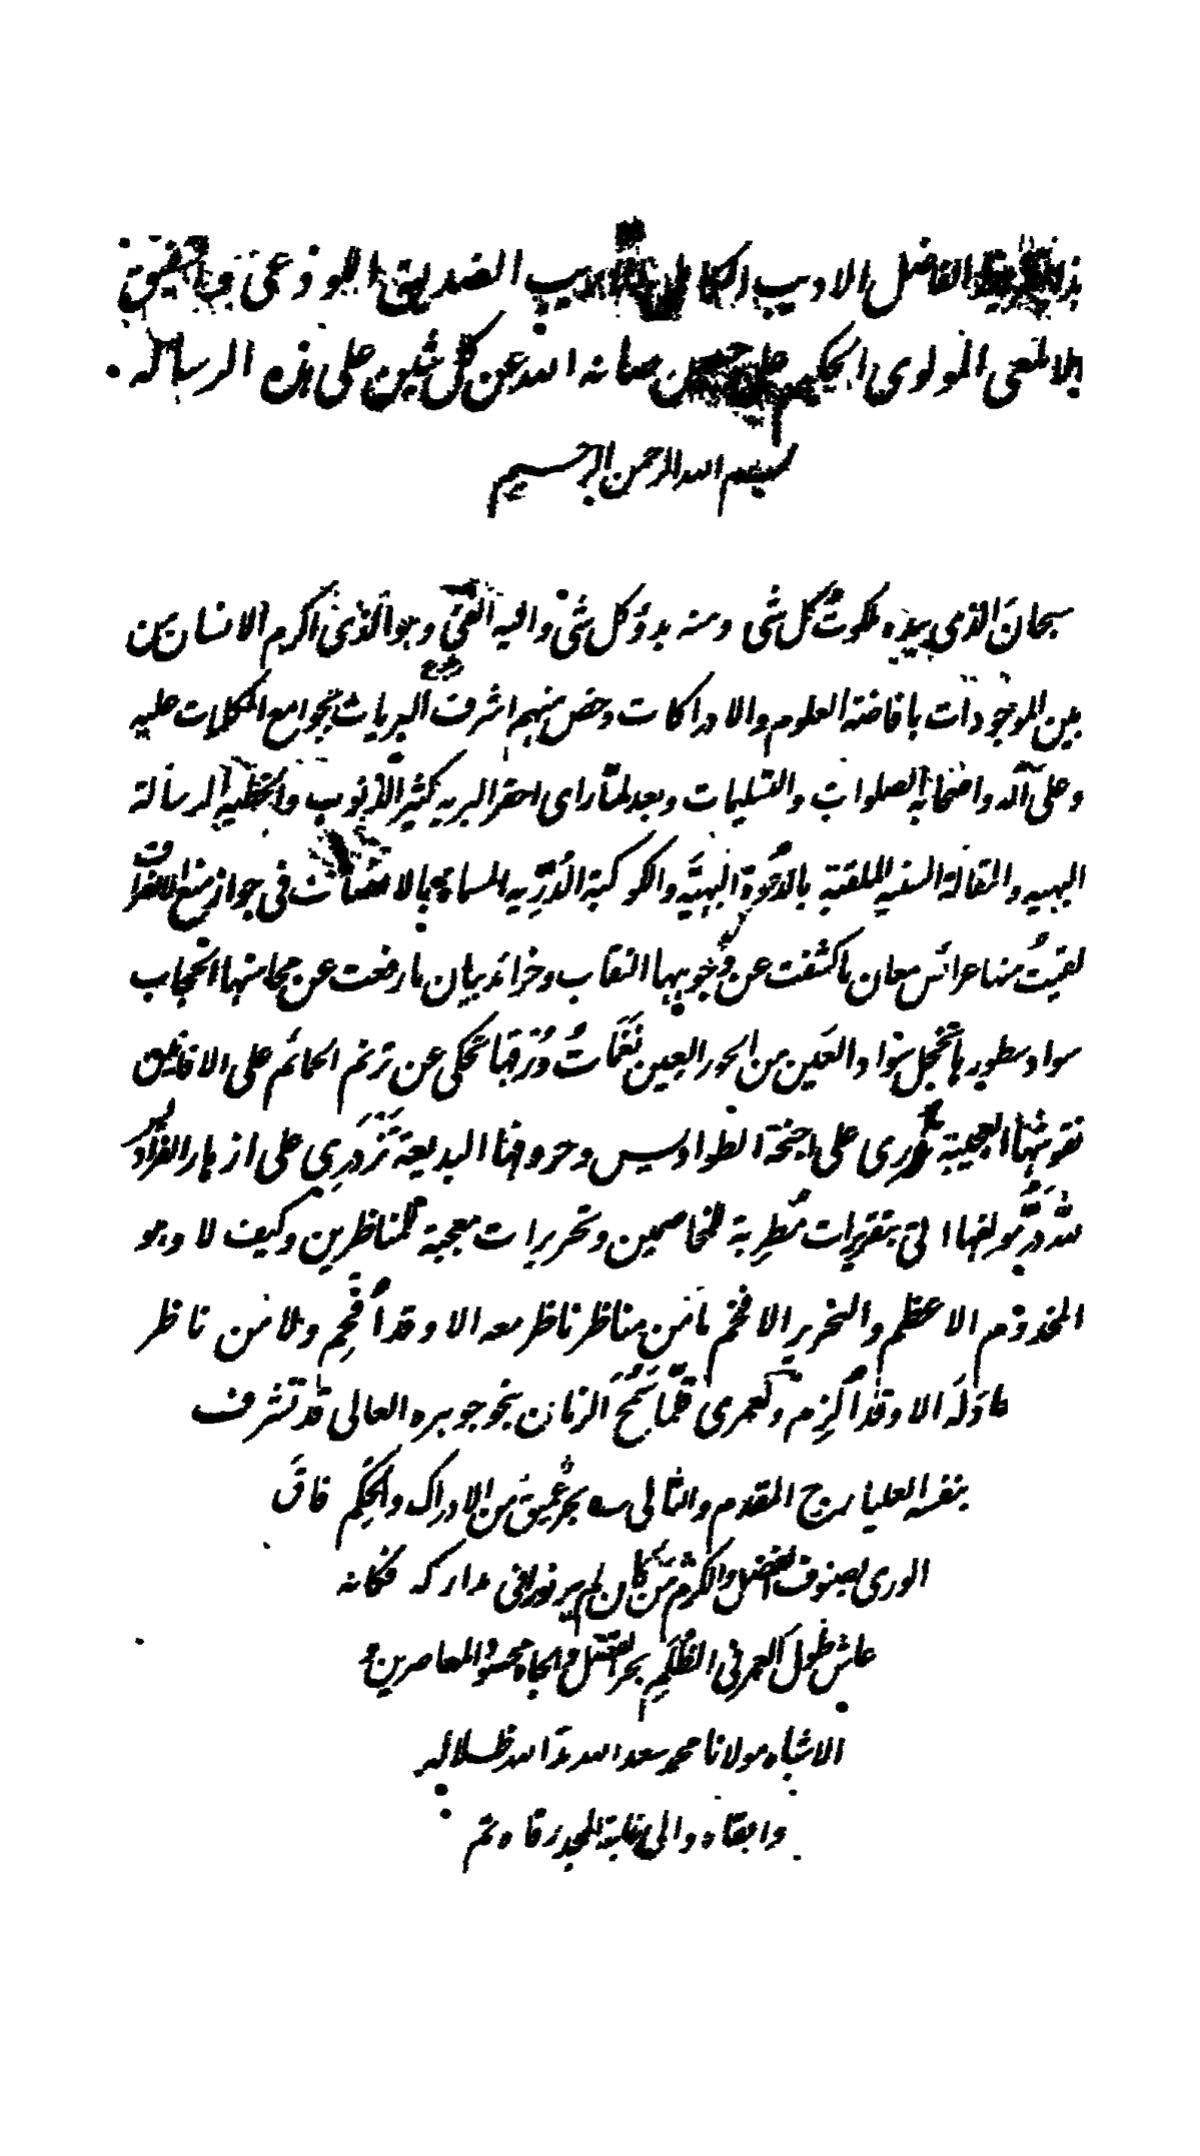 الفاضل الاديب الكامل الصديق اللوذعى
المولوى الحكيم صانه الله عن كل شين على هذه الرسالة
بسم الله الرحمن الرحيم
سبحانَ الذى بيده ملكوتُ كل شى ومنه بدؤ كل شى واليه الفئ وهو الذى اكرم الانسان من
بين الموجودات بافاضة العلوم والادراكات وخص منهم اشرف البريات بجوامع الكلمات عليه
وعلى آله واصحابه الصلوات والتسليمات وبعد لما راى احقر البريه كثير الذنوب والخطيه الرسالة
البهيه والمقالة السنيه الملقبة البهيَّه والكوكبة الدُرِّيه المسماة فى جواز
لقيتُ منها عرائس معان ما كشفت عن وُجوهها النقاب وخرائد بيان ما رفعت عن محاسنها الحجاب
سواد سطورها تُخجل سَواد العَين من الحور العِين نَغَمَاتُ وُرْقها تحكى عن ترنم الحمائم على الافانين
نقوشُها العجيبة تُزرى على اجنحة الطواويس وحروفها البديعة تَزْدَرِي على ازهار
لله دَرُّ مؤلفها اتى بتقريرات مُطرِبة للمخاصمين وتحريرات معجبة للمناظرين وكيف لا وهو
المخدوم الاعظم والنحرير الافخم ما من مناظر ناظر معه الا وقد اُفحِم ولا من ناظر
عادَلَه الا وقد اُلزِم ولعمرى قلّما سَمُحَ الزمان بنحو جوهره العالى قد تشرف
بنفسه العليا المقدم والتالى ے بحرٌ عميقٌ من الادراك والحِكَم فاقَ
الورى بصنوف الفضل والكرم مَن كان لم ير نورا فى مداركه فكانه
عاش طولَ العمر فى الظُلَم بحر الفضل والجاه محسود المعاصرين و
الاشباه مولانا محمد سعد الله مدّ الله ظلاله
وابقاه والى غاية المجد رقاه تم